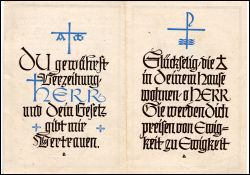 Du gewährst
Verzeihung
HERR
und dein Gesetz
gibt mir
Vertrauen.
Glückselig, die
in deinem Hause
wohnen, o HERR
Sie werden dich
preisen von Ewig-
keit zu Ewigkeit